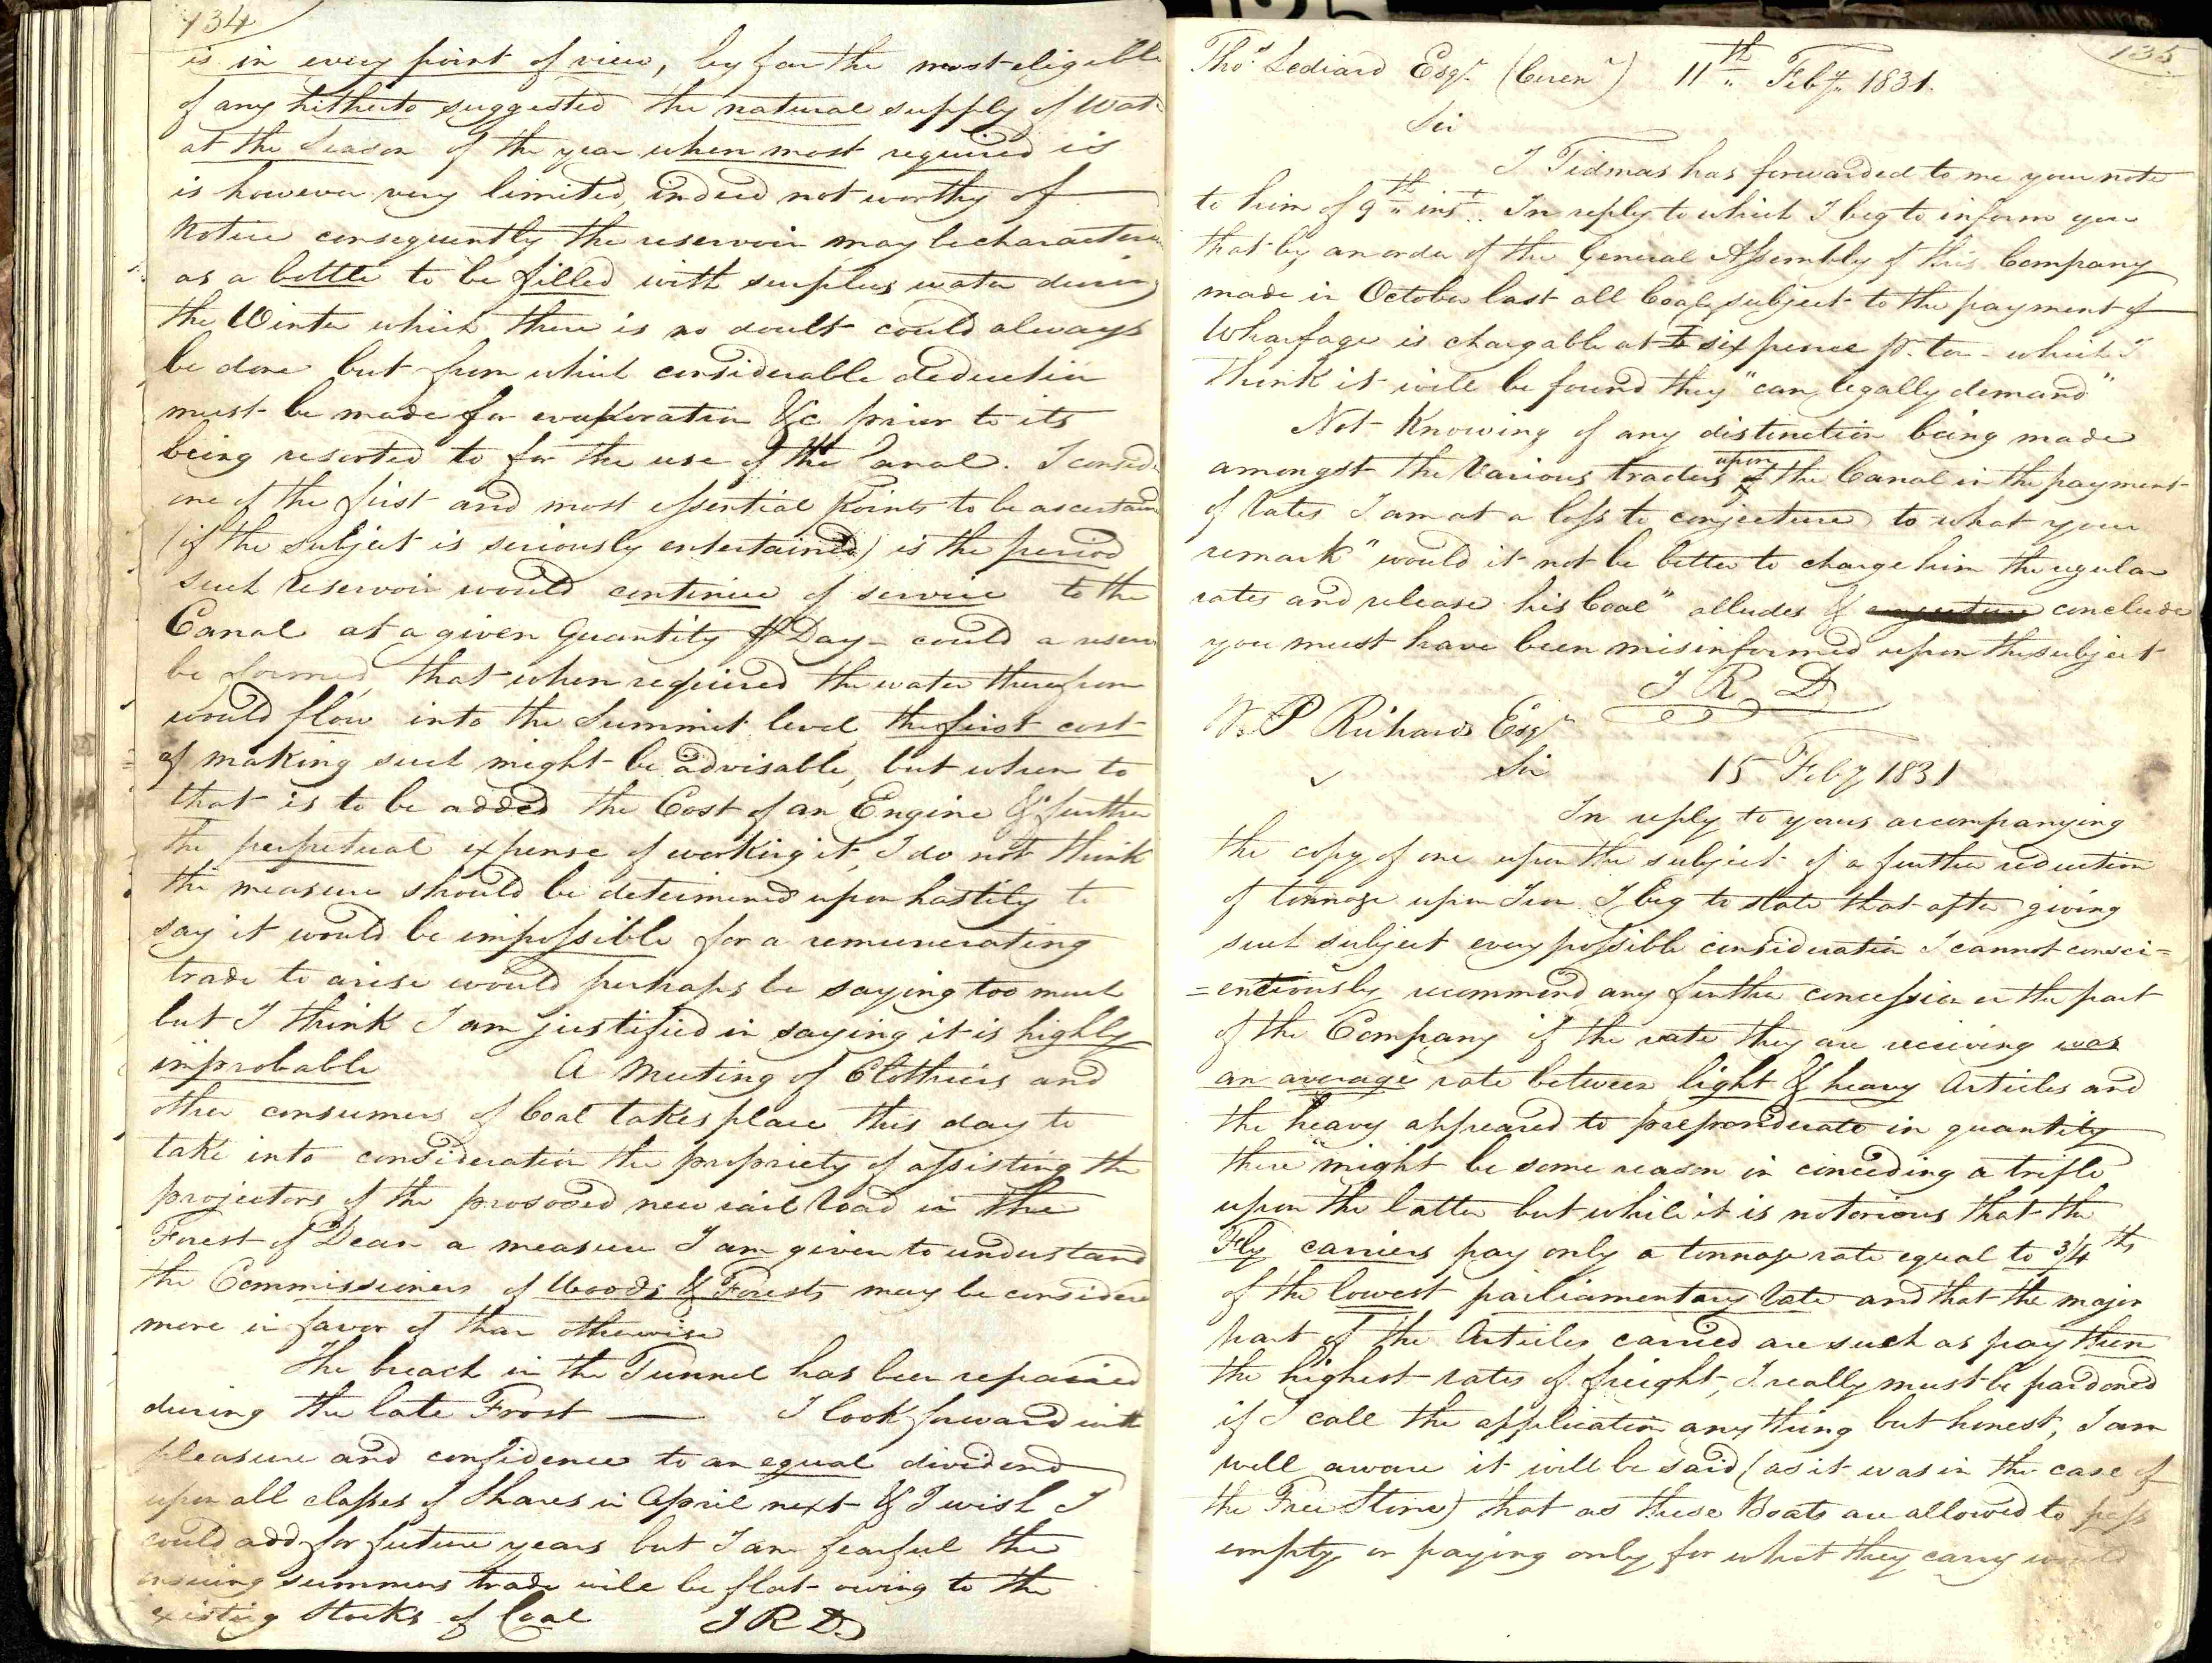 134
is in every point of view, by far the most eligible
of any hitherto suggested the natural supply of Wat
at the Season of the year when most required is
is however very limited, indeed not worthy of
Notice consequently the reservoir may be characteri
as a bottle to be filled with surplus water during
the Winter which there is no doubt could always
be done but from which considerable deduction
must be made for evaporation &c prior to its
being resorted to for the use of the Canal. I consid
one of the first and most essential points to be ascertain
(if the subject is seriously entertained) is the period
such reservoir would continue of service to the
Canal at a given Quantity P Day - could a reserv
be formed that when required the water therefrom
would flow into the Summit level the first cost
of making such might be advisable, but when to
that is to be added the Cost of an Engine & further
the perpetual expense of working it, I do not think
the measure should be determined upon hastily to
say it would be impossible for a remunerating
trade to arise would perhaps be saying too much
but I think I am justified in saying it is highly
improbable A Meeting of Clothiers and
other consumers of Coal takes place this day to
take into consideration the propriety of assisting the
projectors of the proposed new rail Road in the
Forest of Dean a measure I am given to understand
the Commissioners of Woods & Forests may be consider
more in favor of than otherwise
The breach in the Tunnel has been repaired
during the late Frost — I look forward with
pleasure and confidence to an equal dividend
upon all classes of Shares in April next & I wish I
could add for future years but I am fearful the
ensuing summers trade will be flat owing to the
existing Stocks of Coal J R D
135
Thos Lediard Esqr (Ciren) 11th Feby 1831.
Sir
J Tidmas has forwarded to me your note
to him of 9th inst. In reply to which I beg to inform you
that by an order of the General Assembly of this Company
made in October last all Coals subject to the payment of
Wharfage is chargable at sixpence P. ton - which I
think it will be found they "can legally demand"
Not Knowing of any distinction being made
amongst the Various traders upon the Canal in the payment
of Rates I am at a loss to conjecture to what your
remark "would it not be better to charge him the regular
rates and release his Coal" alludes & conjecture conclude
you must have been misinformed upon the subject
J R D
W. P Richards Esqr
Sir 15 Feby 1831
In reply to yours accompanying
the copy of one upon the subject of a further reduction
of tonnage upon Iron I beg to state that after giving
such subject every possible consideration I cannot consci=
=entiously recommend any further concession on the part
of the Company if the rate they are receiving was
an average rate between light & heavy Articles and
the heavy appeared to preponderate in quantity
there might be some reason in conceding a trifle
upon the latter but while it is notorious that the
Fly carriers pay only a tonnage rate equal to 3/4ths
of the lowest parliamentary Rate and that the major
part of the Articles carried are such as pay them
the highest rates of freight, I really must be pardoned
if I call the application any thing but honest, I am
well aware it will be said (as it was in the case of
the Free Stone) that as these Boats are allowed to pass
empty, or paying only for what they carry would